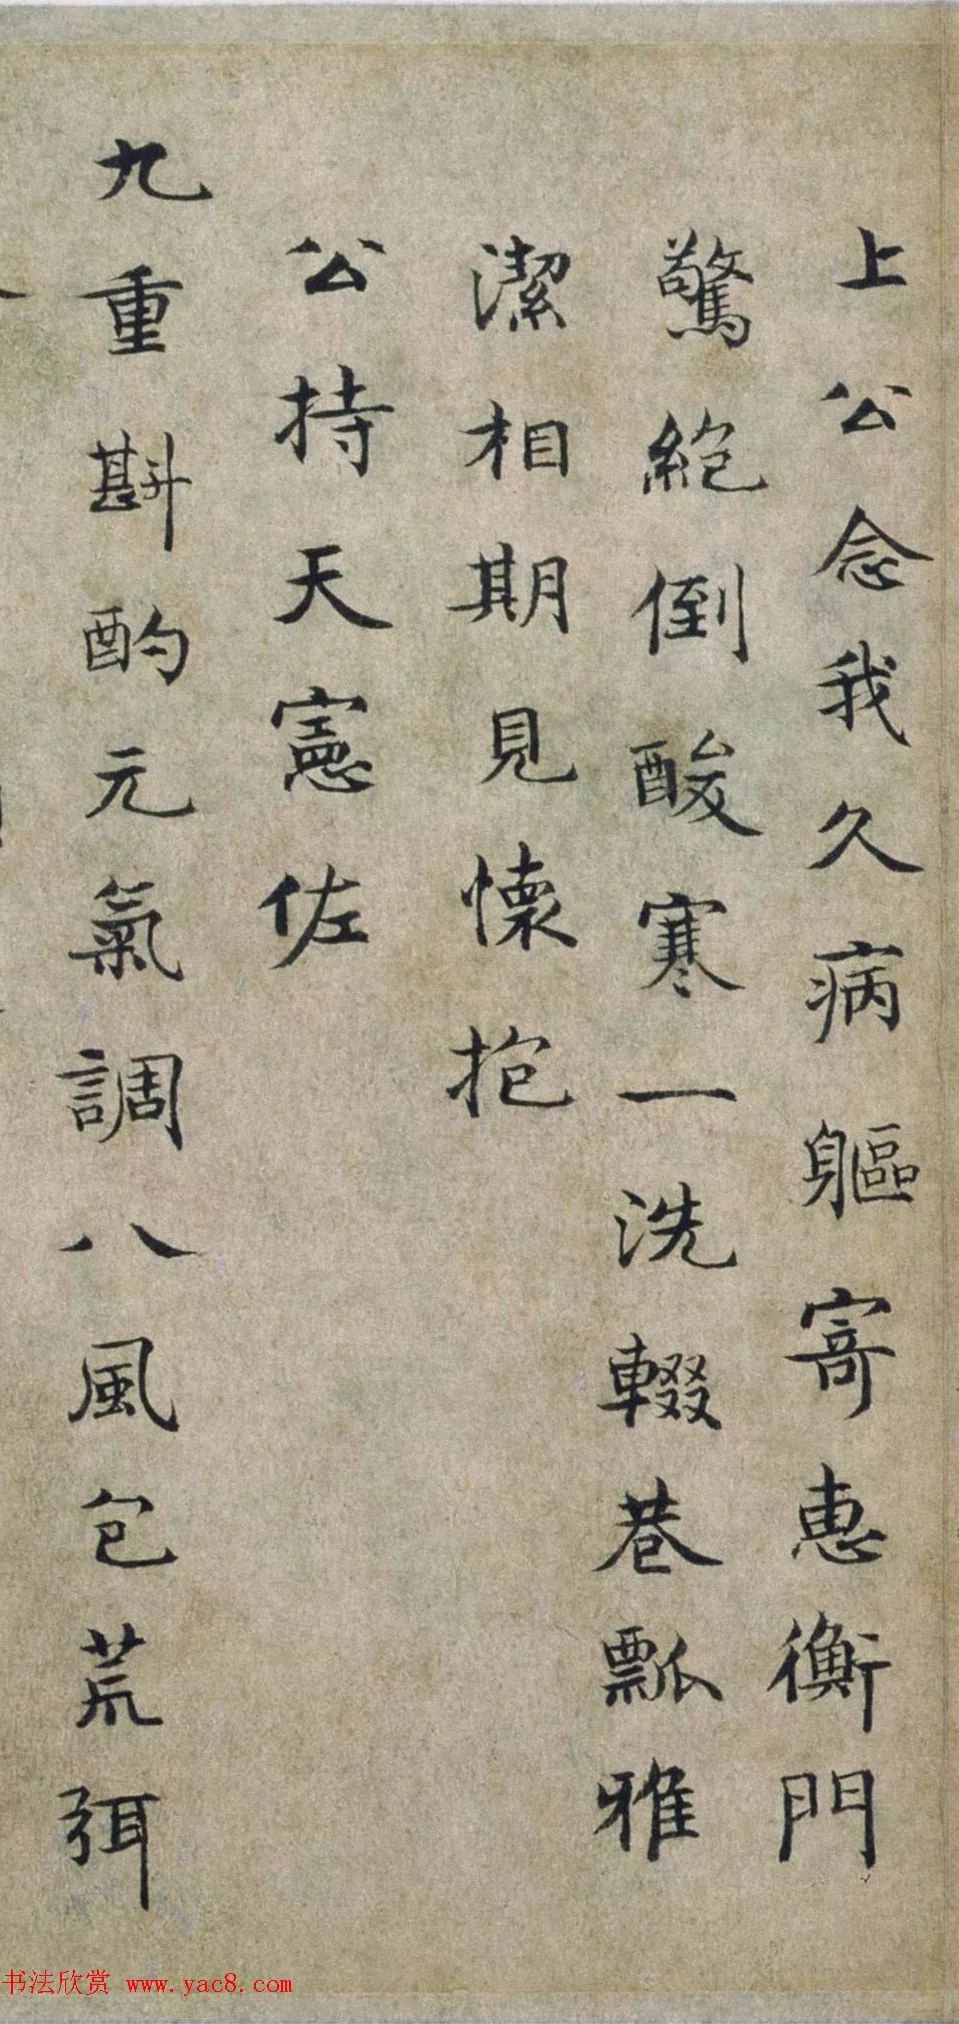 上公念我久病軀寄惠衡門
驚絕倒酸寒一洗輟巷瓢雅
潔相期見懷抱
公持天憲佐
九重斟酌元氣調八風包荒弭
书法欣赏 www.yac8.com